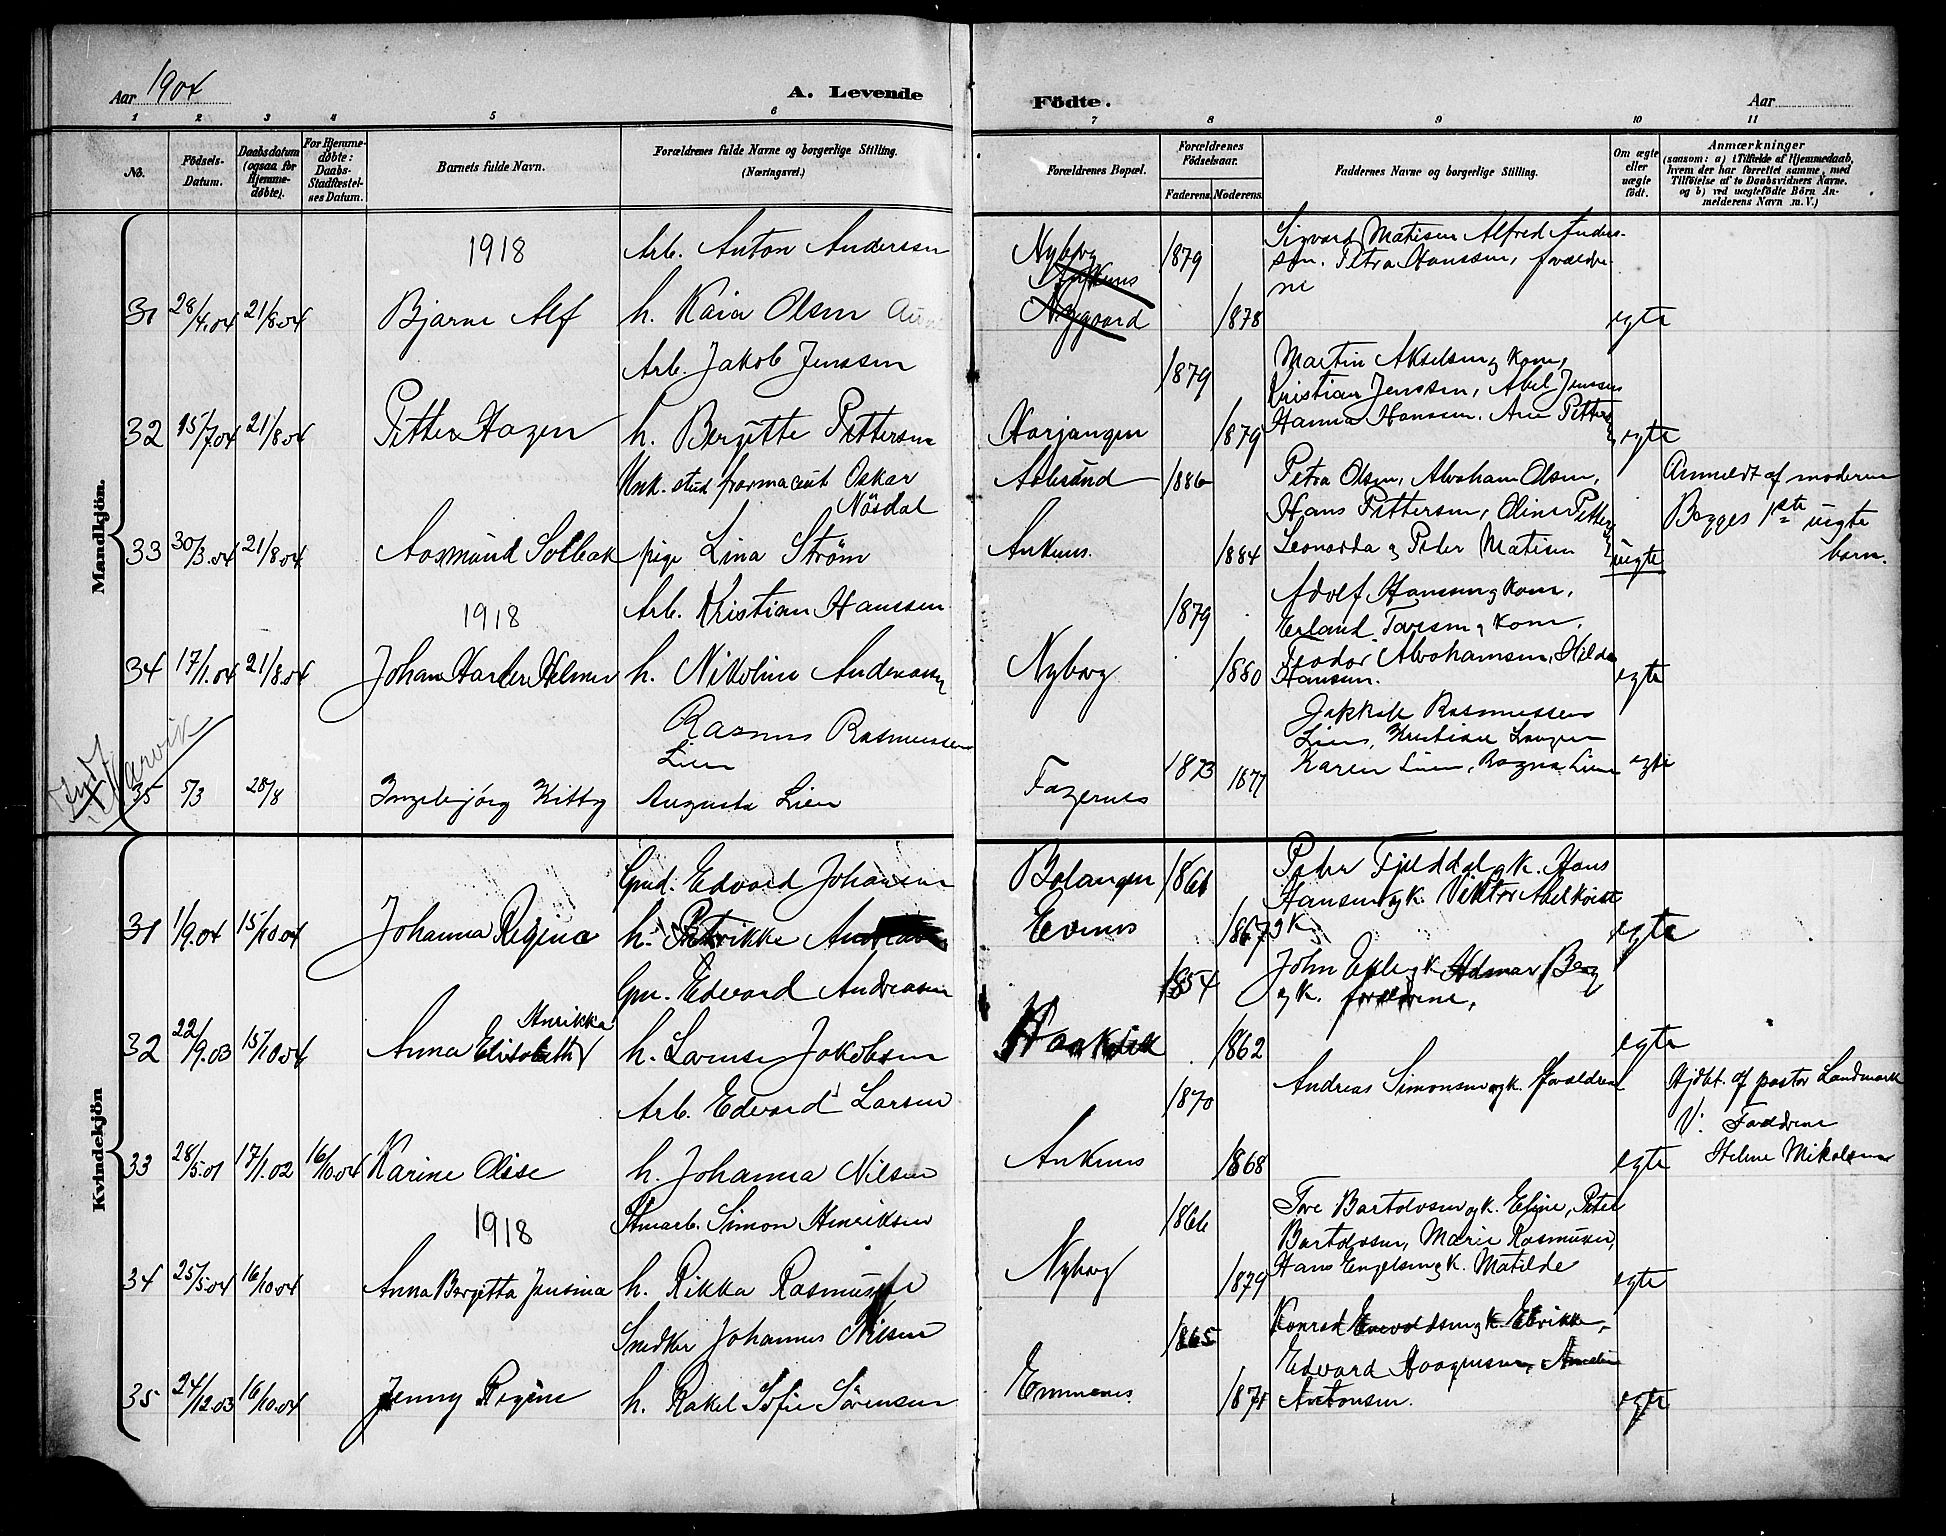 Aar 1904
A. Levende
Födte.
Aar
1 2 3 4 5 6 7 8 9 10 11
No.
Födsels-Datum.
Daabsdatum (ogsaa for Hjemme-döbte).
For Hjemme-döbte: Daabs-Stadfæstel-ses Datum.
Barnets fulde Navn.
Forældrenes fulde Navne og borgerlige Stilling.
(Næringsvei.)
Forældrenes Bopæl.
Forældrenes Födselsaar.
Faderens. Moderens.
Faddernes Navne og borgerlige Stilling.
Om ægte eller uægte födt.
Anmærkninger
(saasom: a) i Tilfælde af Hjemmedaab,
hvem der har forrettet samme, med
Tilföielse af to Daabsvidners Navne.
og b) ved uægtefödte Börn An-
melderens Navn m. V.)
Mandkjön.
1918
Arb. Anton Andersen
Nyborg
Ankenes
1879
Sigvard Matisen Alfred Ander-
sen. Petra Hanssen, forældre-
ne
31 28/4.04 21/8 04 Bjarne Alf h. Kaia Olsen
Nygaard
1878
egte
Arb. Jakob Jenssen
1879
Martin Akselsen og kone,
Kristian Jenssen, Abel Jenssen
Hanna Hanssen. Ane Petters
32 15/7 04 21/8 04 Petter Hagen h. Bergitte Pettersen
Harjangen
1879
egte
Unk. stud. farmaceut Oskar
Nösdal
Aalesund
1886
Petra Olsen, Abraham Olsen,
Hans Pettersen, Oline Petters
Anmeldt af moderen
Begges 1ste uegte
barn.
33 30/3.04 21/8 04 Aasmund Solbak pige Lina Ström
Ankenes.
1884
Leonarda og Peder Matisen
uegte
1918
Arb. Kristian Hanssen
1879
Adolf Hansen og kone,
Erland Toresen og kone,
34 17/1.04 21/8 04 Johan Helmer h. Nikoline Andreassen
Nyborg
1880
Teodor Abrahamsen, Hilda
Hansen.
egte
Rasmus Rasmussen
Lien
Rasmussen
Lien, Kristian
Karen Lien, Ragna Lien
Narvik
35 5/3 28/8 Ingebjørg Kitty Augusta Lien
Fagernes
1873 1877
egte
Kvindekjön
Gmd. Edvard Johansen
Bolangen
1861
Peder Fjelddal og k. Hans
Hansen og k. Viktor
og k.
31 1/9.04 15/10 04 Johanna Regina h. Petrikke
Evenes
1867
egte
Gm. Edvard Andreasen
1854
John og k Berg
og k. forældrene,
Henrikka
32 22/9.03 15/10 04 Anna Elisabeth h. Lovise Jakobsen
Haakvik
1862
egte
Arb. Edvard Larsen
1870
Andreas Simonsen og k. forældrene
Hjdbt. af pastor Landmark
V. Forældrene
Helene Mikalsen
33 28/5.01 17/1.02 16/10.04 Karine Olise h. Johanna Nilsen
Ankenes
1868
egte
1918
Stuearb. Simon Henriksen
1866
Tore Bartolosen og k. Eline, Peter
Bartolosen, Marie Rasmusen,
Hans Engelsen og k. Matilde
34 25/5 04 16/10 04 Anna Bergitta Jensina h. Rikka Rasmusse
Nyborg
1879
egte
Snedker Johannes Nilsen
1865
Konrad Enevoldsen og k. Elvikke,
Edvard Haagensen, Amelie
Antonsen.
35 24/12.03 16/10.04 Jenny Regine h. Rakel Sofie Sörensen
Emmenes
1871
egte